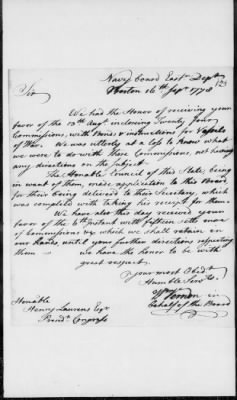 Navy Board East.n Dept
Boston 16th Sepr. 1778
123
Sir
We had the Honor of receiving your
favor of the 13th Augt. inclosing Twenty Four
Commissions, with Bonds & instructions for Vessels
of War. We was utterly at a loss to know what
we were to do with these Commissions, not having
any directions on the Subject.
The Honable Council of this State, being
in want of them, made application to this Board
for their being delivered to their Secretary, which
was complied with taking his receipt for them.
We have also this day received your
favor of the 6th instant with fifteen setts more
of Commissions &c which we shall retain in
our hands until your further directions respecting
them we have the honor to be with
great respect
Your most Obedt.
Humble Servts.
Wm Vernon in
behalf of the Board
Honable
Henry Laurens Esqr
Presidt. Congress